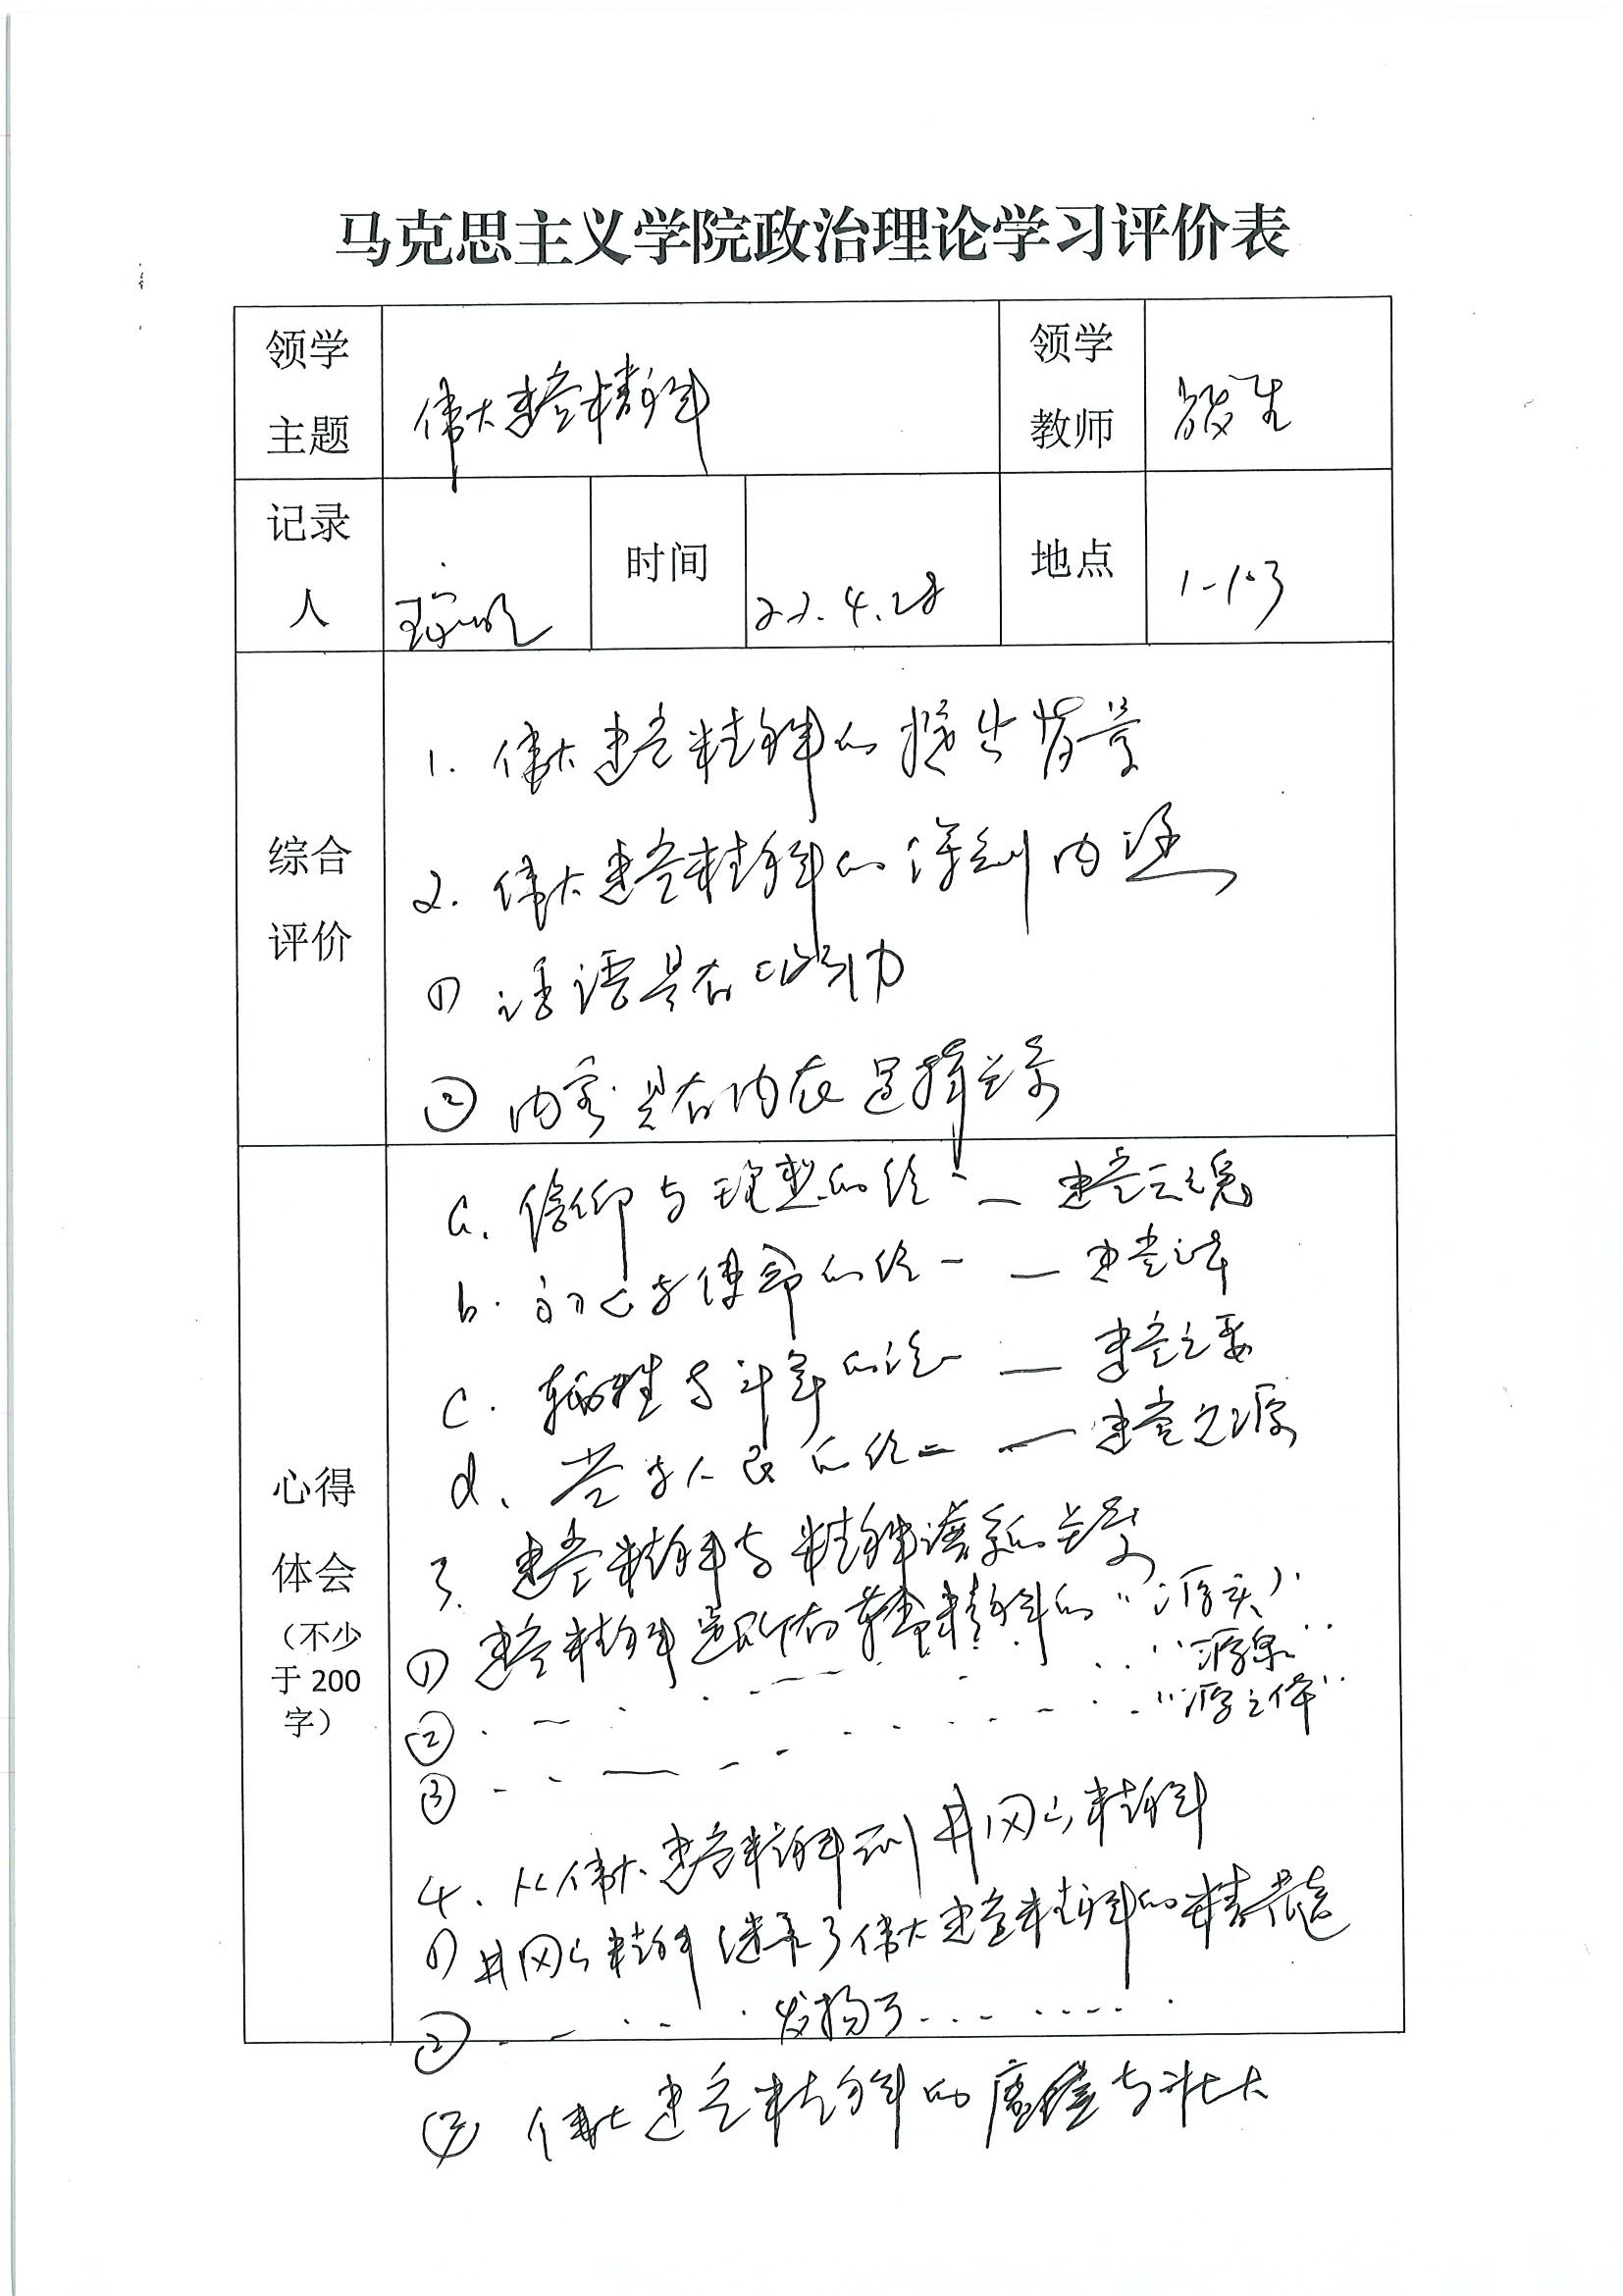 马克思主义学院政治理论学习评价表
领学
主题
伟大建党精神
领学
教师
记录
人
时间
22.4.28
地点
1-103
综合
评价
1. 伟大建党精神的提出背景
2. 伟大建党精神的深刻内涵
① 话语具有吸引力
② 内容具有内在逻辑关系
心得
体会
（不少
于 200
字）
a. 信仰与理想的统一 — 建党之魂
b. 初心与使命的统一 — 建党之本
c. 牺牲与斗争的统一 — 建党之要
d. 党与人民的统一 — 建党之源
3. 建党精神与精神谱系的关系
① 建党精神是所有革命精神的“源头”
② “源泉”
③
4. 从伟大建党精神到井冈山精神
① 井冈山精神继承了伟大建党精神的精髓
② 发扬了
③ 伟大建党精神的赓续与壮大